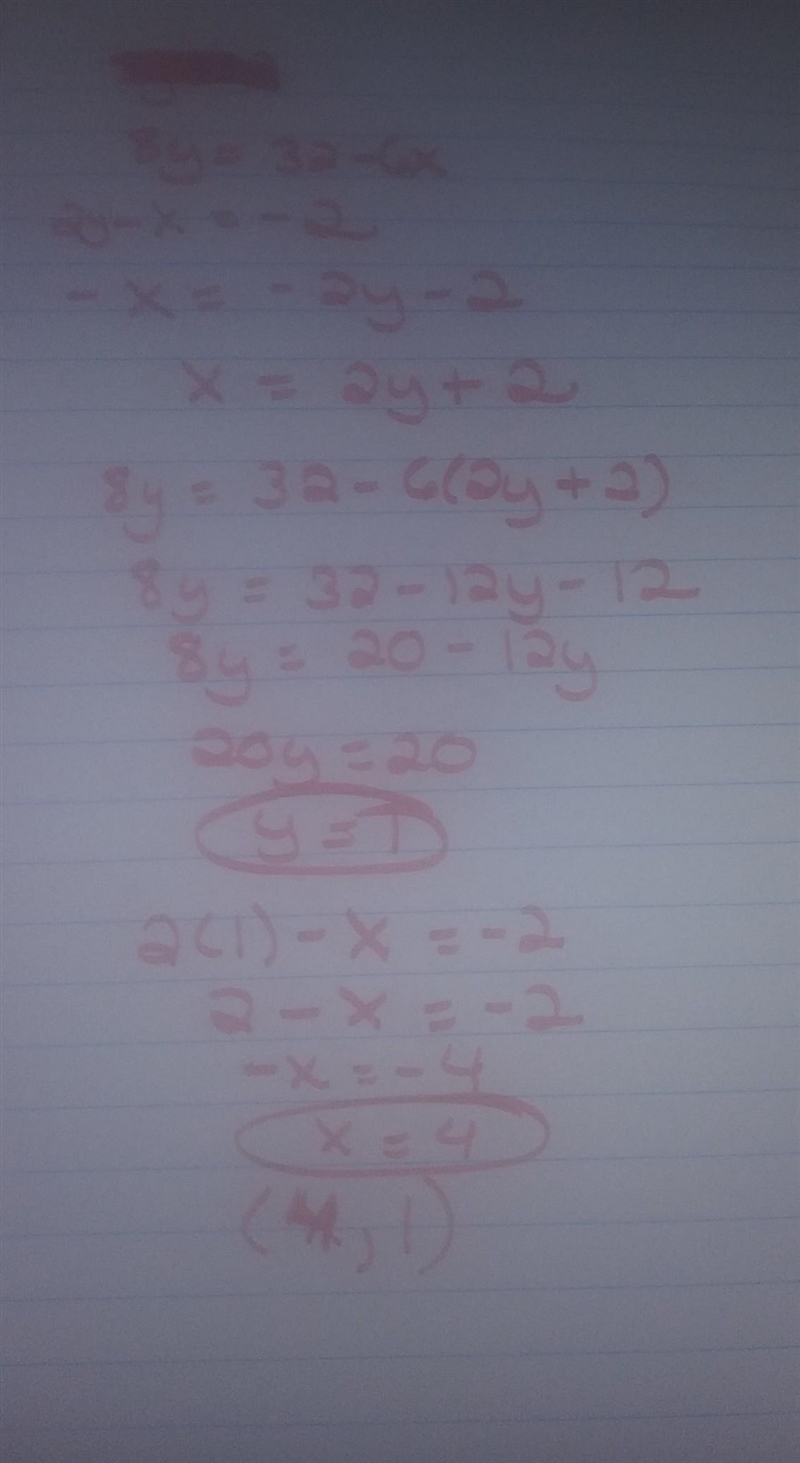 8y = 32 - 6x
2y - x = -2
- x = - 2y - 2
x = 2y + 2
8y = 32 - 6(2y + 2)
8y = 32 - 12y - 12
8y = 20 - 12y
20y = 20
y = 1
2(1) - x = -2
2 - x = -2
-x = -4
x = 4
(4, 1)